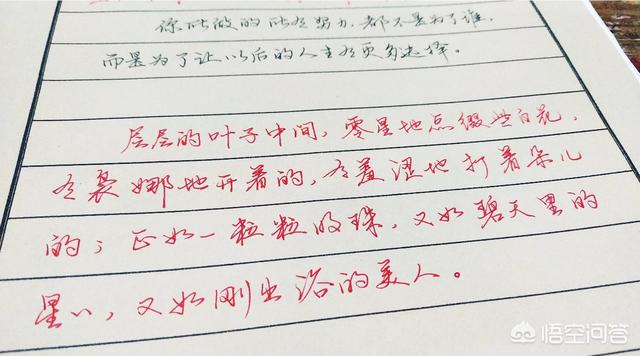 你所做的所有努力,都不是为了谁,
而是为了让以后的人生有更多选择。
层层的叶子中间,零星地点缀些白花,
有袅娜地开着的,有羞涩地打着朵儿
的;正如一粒粒明珠,又如碧天里的
星星,又如刚出浴的美人。
悟空问答